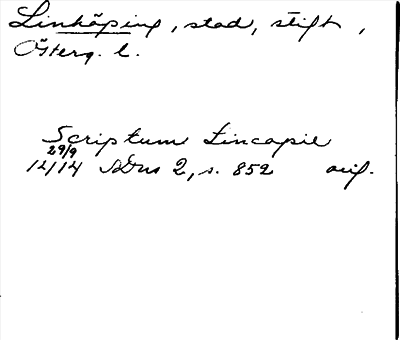 Linköping, stad, stift,
Österg. l.
Scriptum Lincopie
29/9
1414 SDns 2, s. 852 orig.